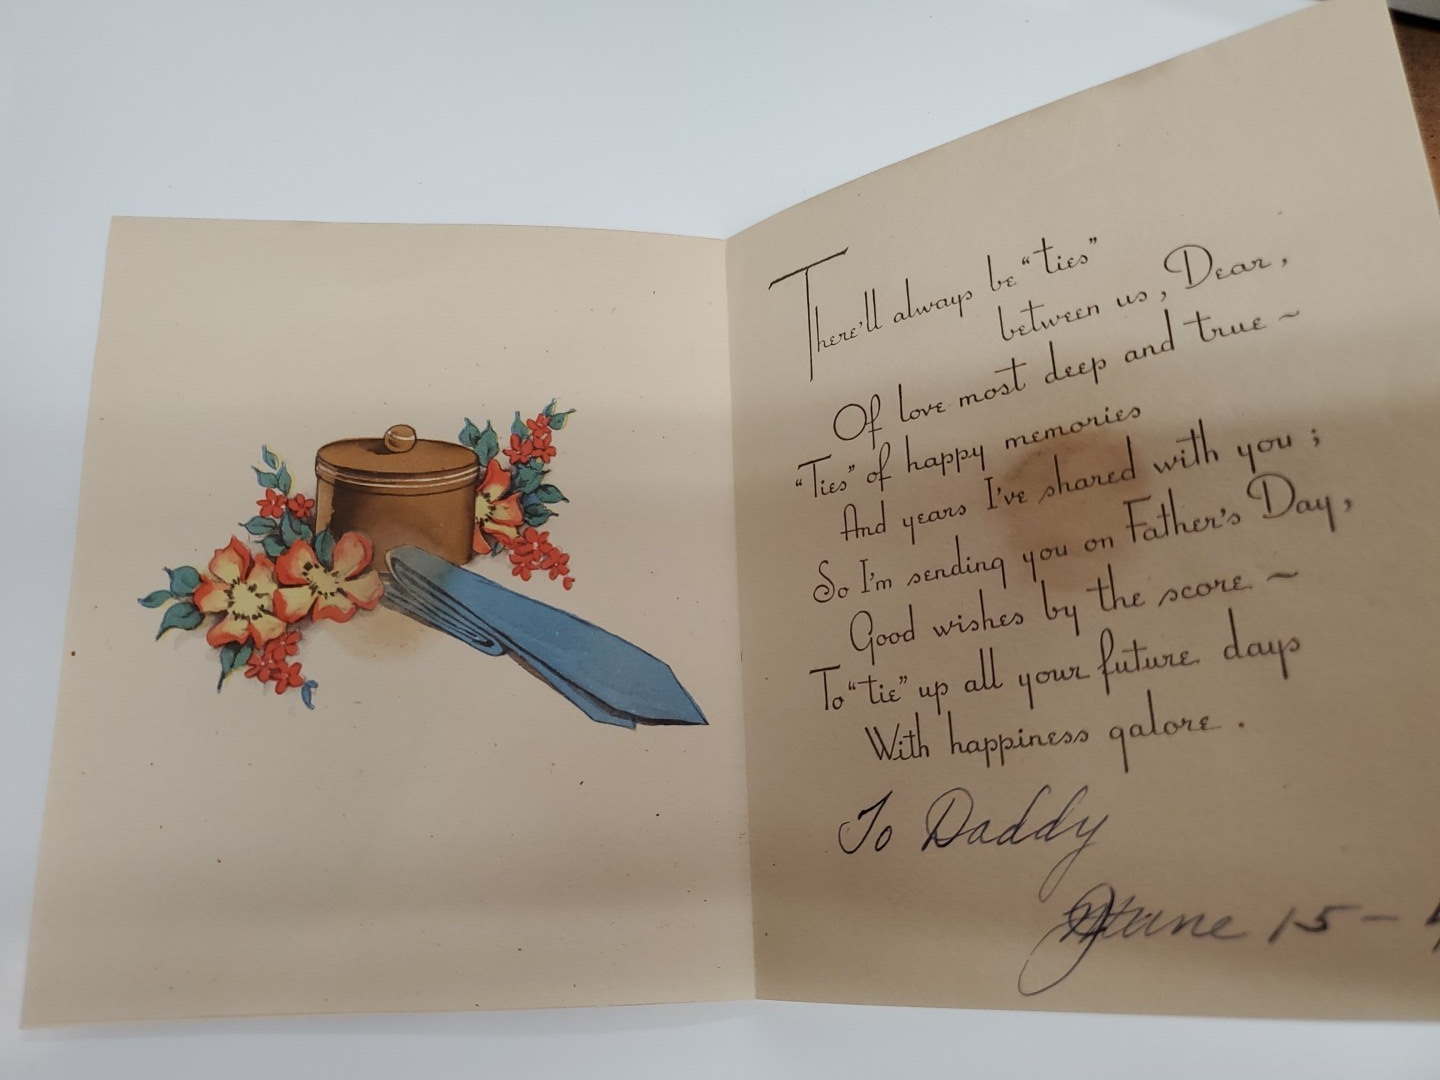 There'll always be "ties"
between us, Dear,
Of love most deep and true ~
"Ties" of happy memories
And years I've shared with you;
So I'm sending you on Father's Day,
Good wishes by the score ~
To "tie" up all your future days
With happiness galore.
To Daddy
June 15 -